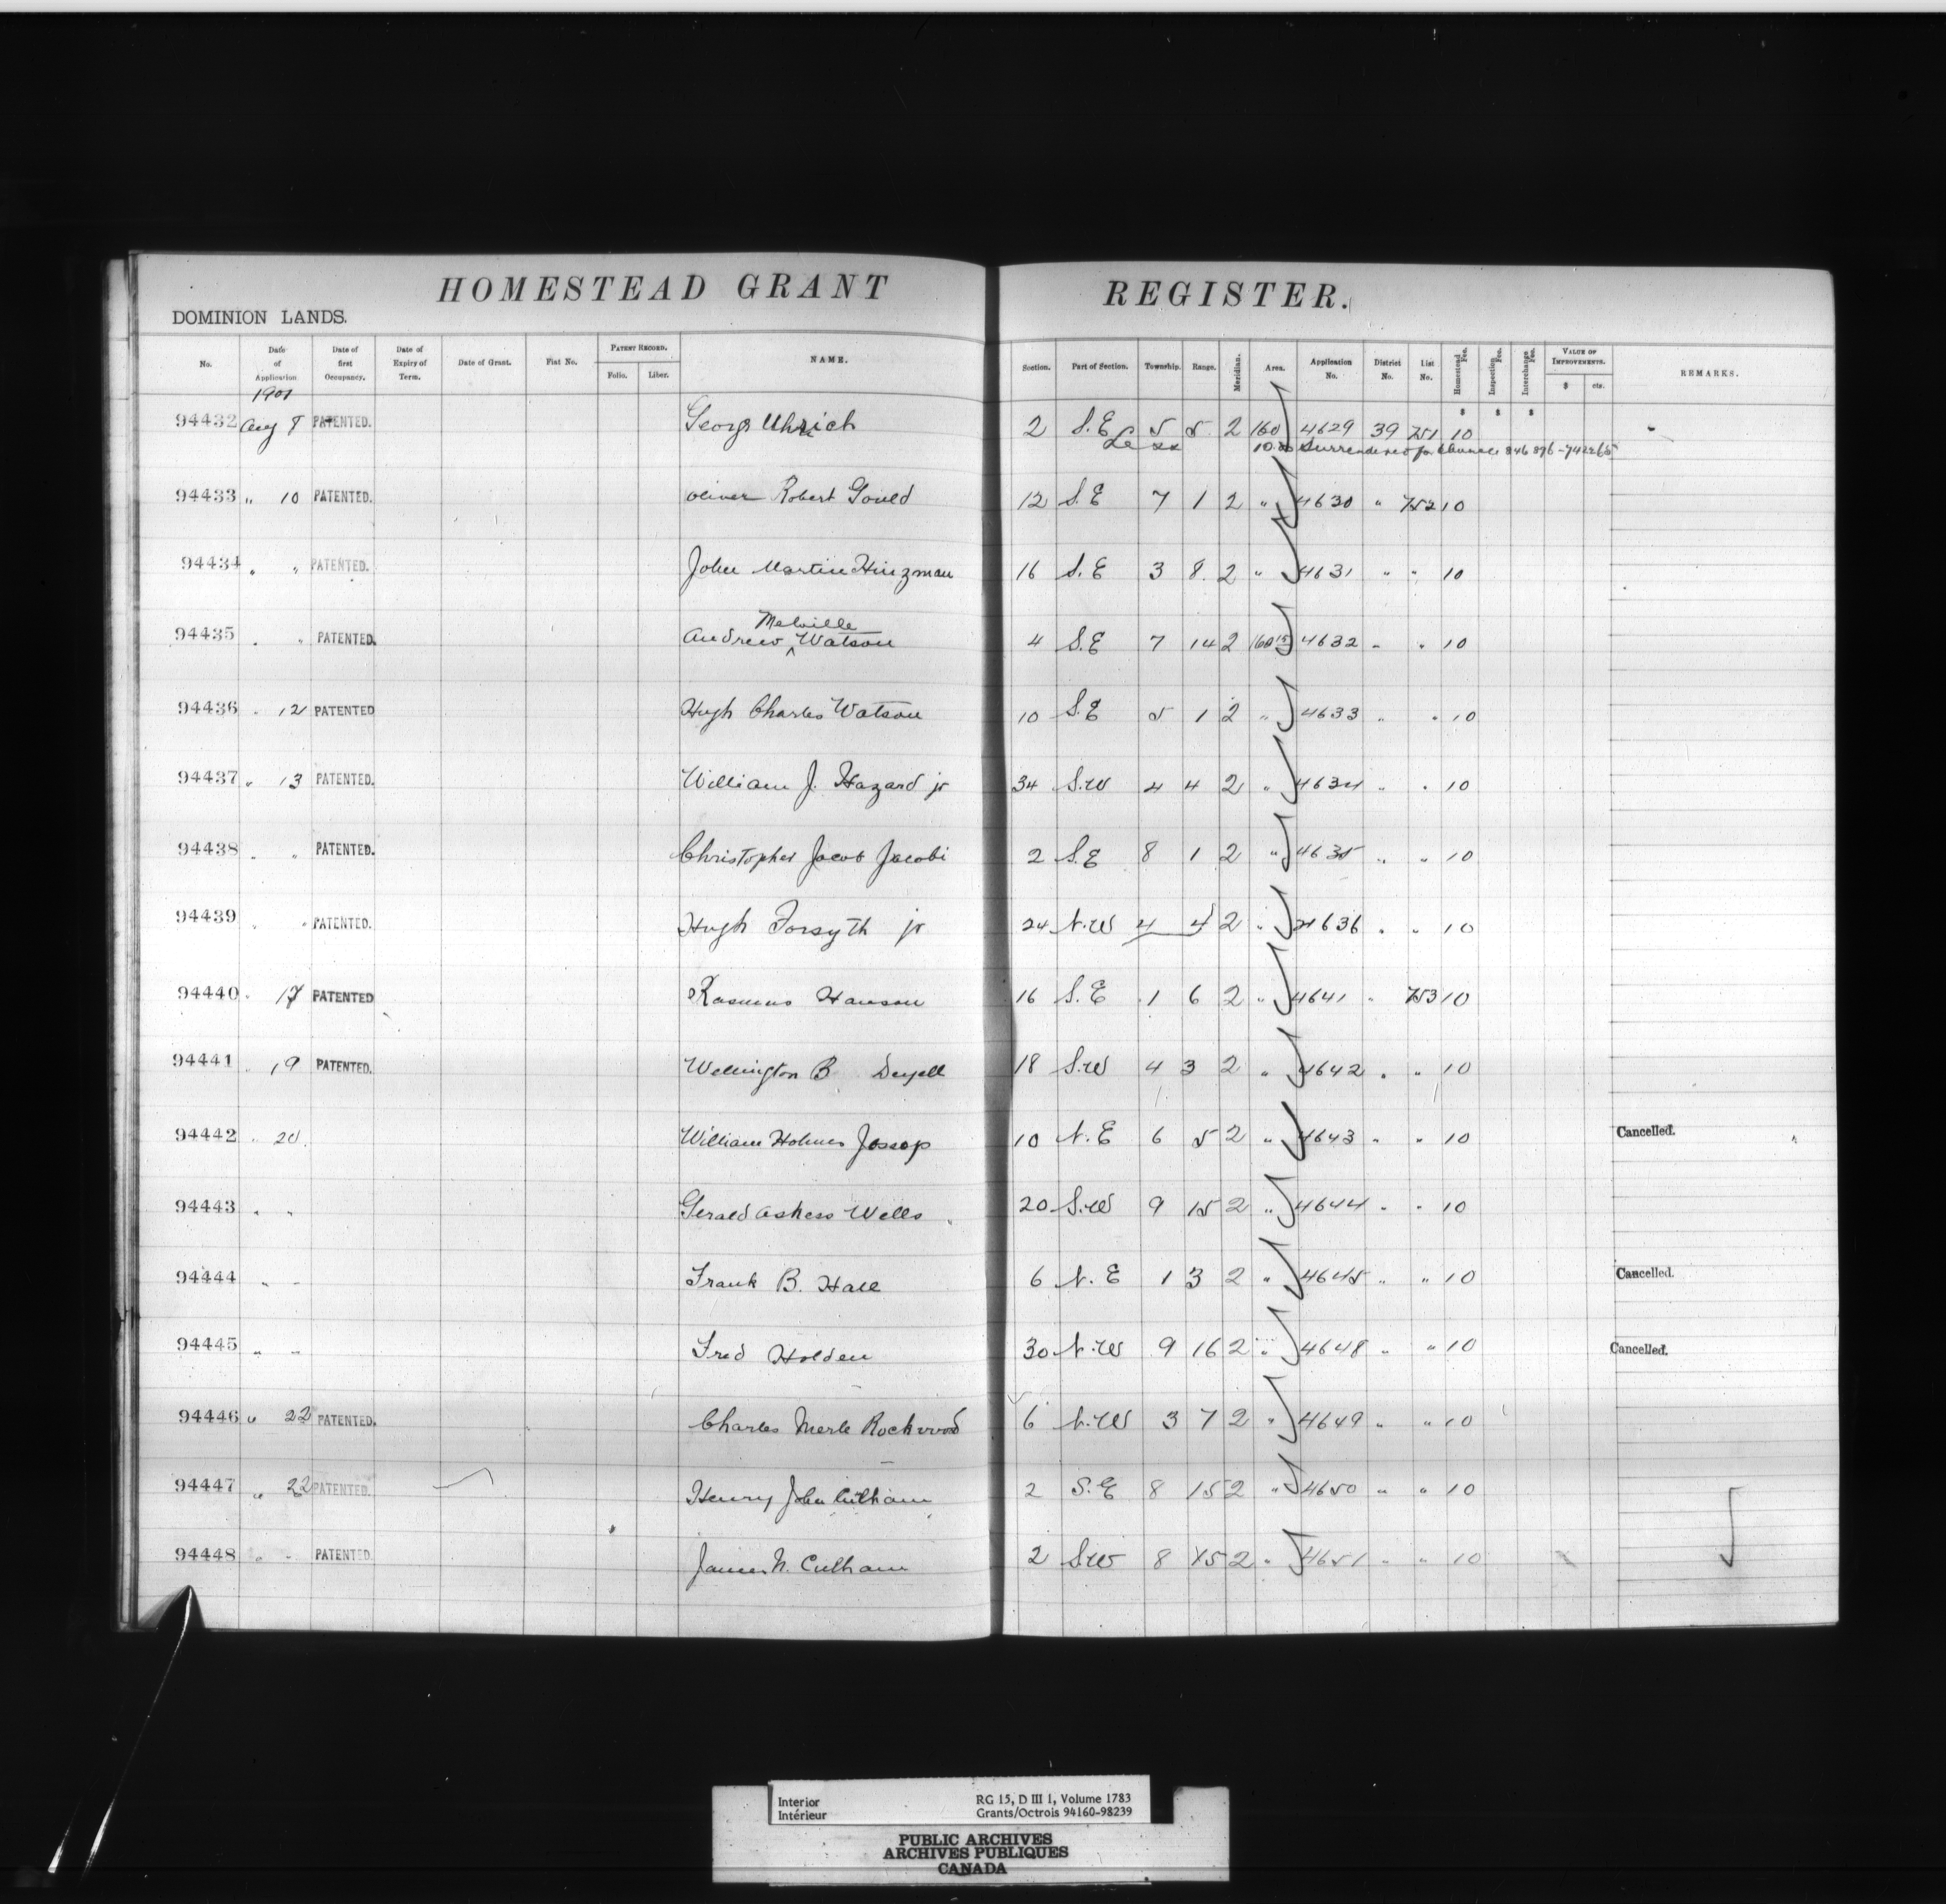 HOMESTEAD GRANT REGISTER.
DOMINION LANDS.
No. Date of Application Date of first Occupancy. Date of Expiry of Term. Date of Grant. Fiat No. PATENT RECORD. Folio. Liber. NAME. Section. Part of Section. Township. Range. Meridian. Area. Application No. District No. List No. Homestead Fee. Inspection Fee. Interchange Fee. VALUE OF IMPROVEMENTS. $ cts. REMARKS.
1901 $ $ $
94432 Aug 8 PATENTED. George Uhrich 2 S.E 5 5 2 160 4629 39 751 10
Surrendered for
94433 " 10 PATENTED. Oliver Robert Gould 12 S.E 7 1 2 " 4630 " 752 10
94434 " " PATENTED. John Martin Hinzman 16 S.E 3 8 2 " 4631 " " 10
Melville
94435 " " PATENTED. Andrew ^ Watson 4 S.E 7 14 2 160 4632 " " 10
94436 " 12 PATENTED Hugh Charles Watson 10 S.E 5 1 2 " 4633 " " 10
94437 " 13 PATENTED. William J. Hazard jr 34 S.W 4 4 2 " 4634 " " 10
94438 " " PATENTED. Christopher Jacob Jacobi 2 S.E 8 1 2 " 4635 " " 10
94439 " " PATENTED. Hugh Forsyth jr 24 N.W 4 4 2 " 4636 " " 10
94440 " 17 PATENTED Rasmus Hanson 16 S.E 1 6 2 " 4641 " 753 10
94441 " 19 PATENTED. Wellington B. Deyell 18 S.W 4 3 2 " 4642 " " 10
94442 " 20 William Holmes Jessop 10 N.E 6 5 2 " 4643 " " 10 Cancelled.
94443 " " Gerald Wells 20 S.W 9 15 2 " 4644 " " 10
94444 " " Frank B. Hall 6 N.E 1 3 2 " 4645 " " 10 Cancelled.
94445 " " Fred Holden 30 N.W 9 16 2 " 4648 " " 10 Cancelled.
94446 " 22 PATENTED. Charles Merle Rockwood 6 N.W 3 7 2 " 4649 " " 10
94447 " 22 PATENTED. Henry John Culham 2 S.E 8 15 2 " 4650 " " 10
94448 " " PATENTED James N. Culham 2 S.W 8 15 2 " 4651 " " 10
Interior RG 15, D III 1, Volume 1783
Intérieur Grants/Octrois 94160-98239
PUBLIC ARCHIVES
ARCHIVES PUBLIQUES
CANADA